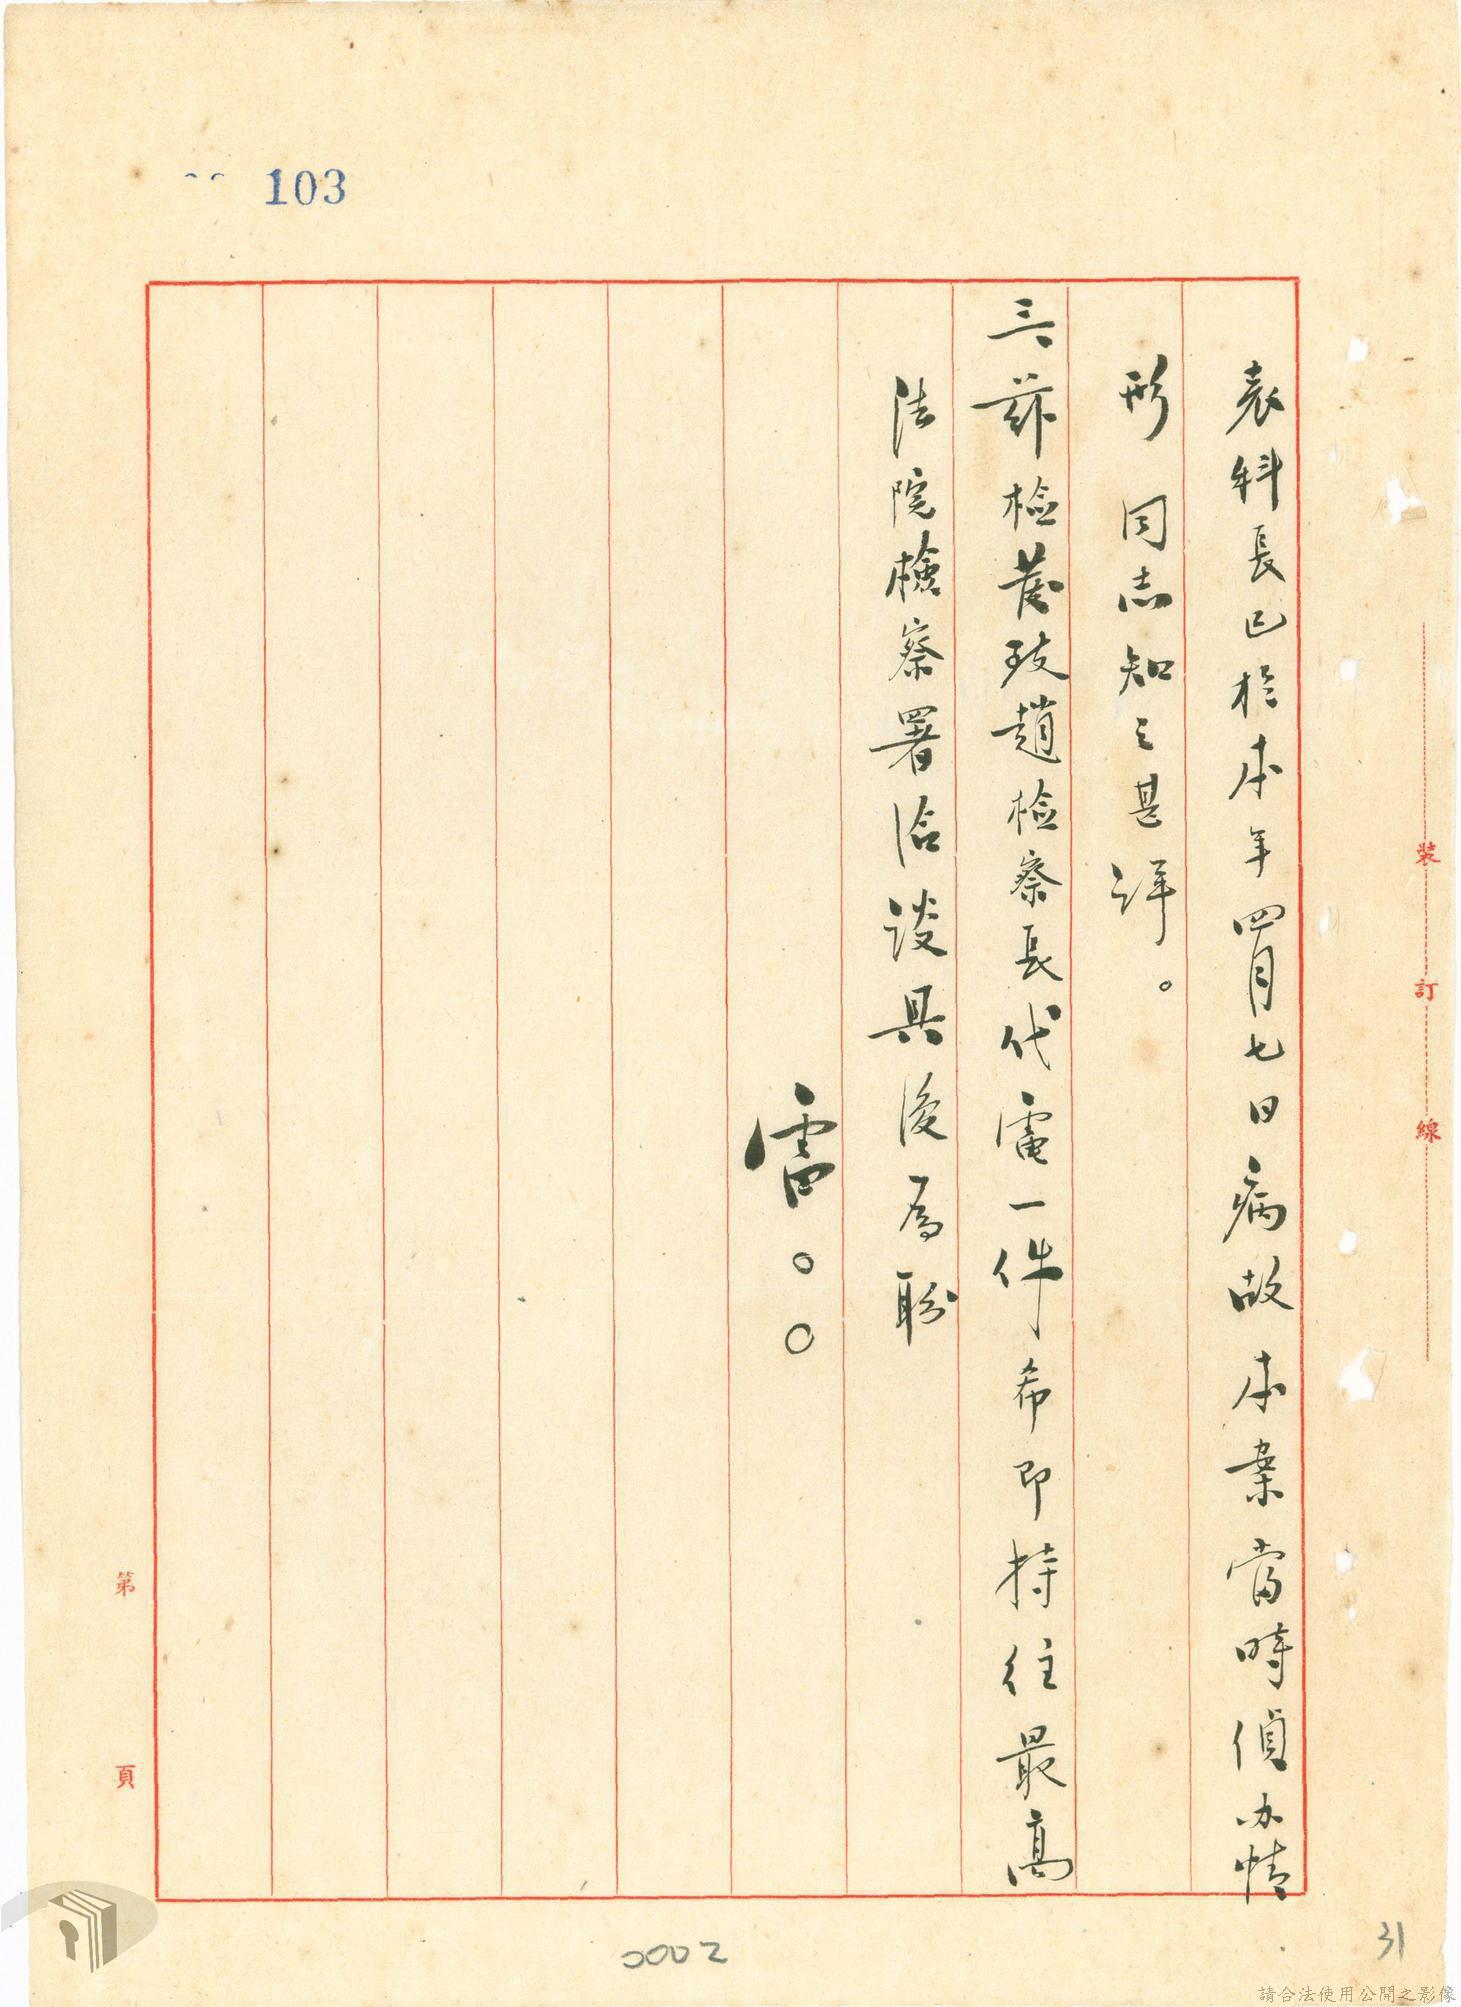 103
袁科長已於本年四月七日病故本案當時偵办情
形同志知之甚詳。
三、茲檢發致趙檢察長代電一件希即持往最高
法院檢察署洽談具復為盼
雷○○
裝訂線
第 頁
0002
31
請合法使用公開之影像